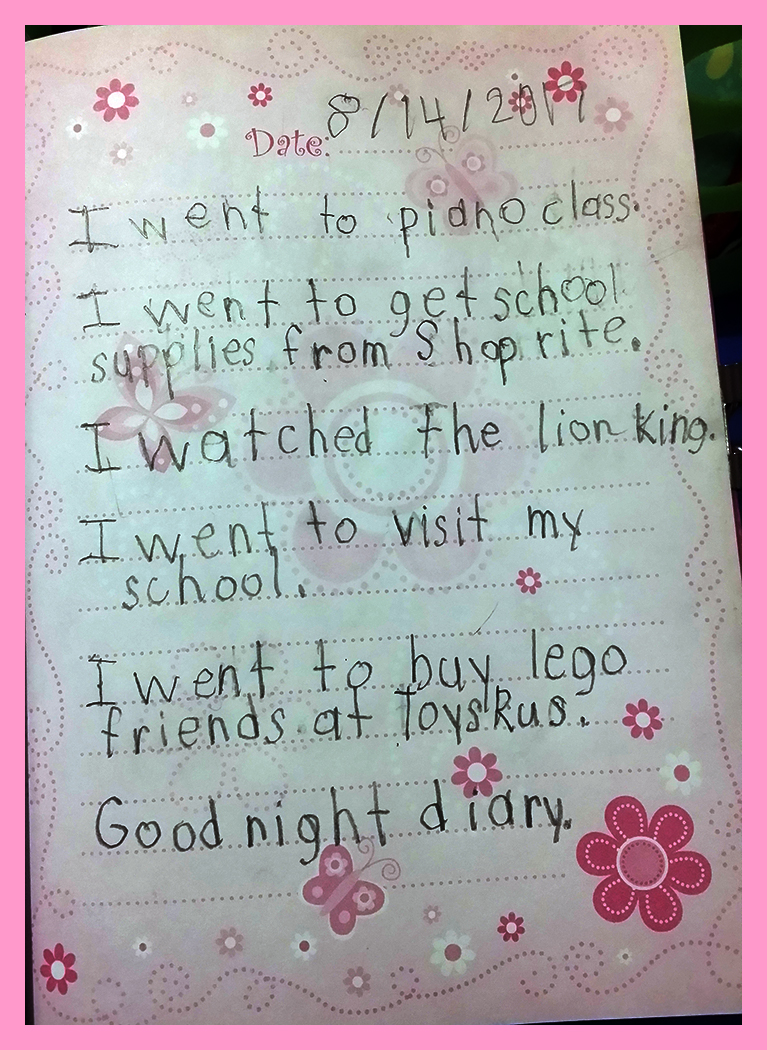 Date: 8/14/2017
I went to piano class.
I went to get school
supplies from Shoprite.
I watched the lion king.
I went to visit my
school.
I went to buy lego
friends at ToysRus.
Good night diary.